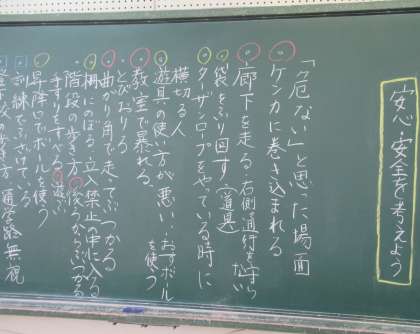 安心・安全を考えよう
「危ない」と思った場面
ケンカに巻き込まれる
廊下を走る・右側通行を守らない
袋をふり回す(道具)
ターザンロープをやっている時に
横切る人
遊具の使い方が悪い…おすボールを使う
教室で暴れる
とびおりる
曲がり角で走ってぶつかる
柵にのぼる・立入禁止の中に入る
階段の歩き方 後ろからぶつかる
手すりをすべる 遊ぶ
昇降口でボールを使う
訓練でふざけている
登下校の歩き方 通学路無視